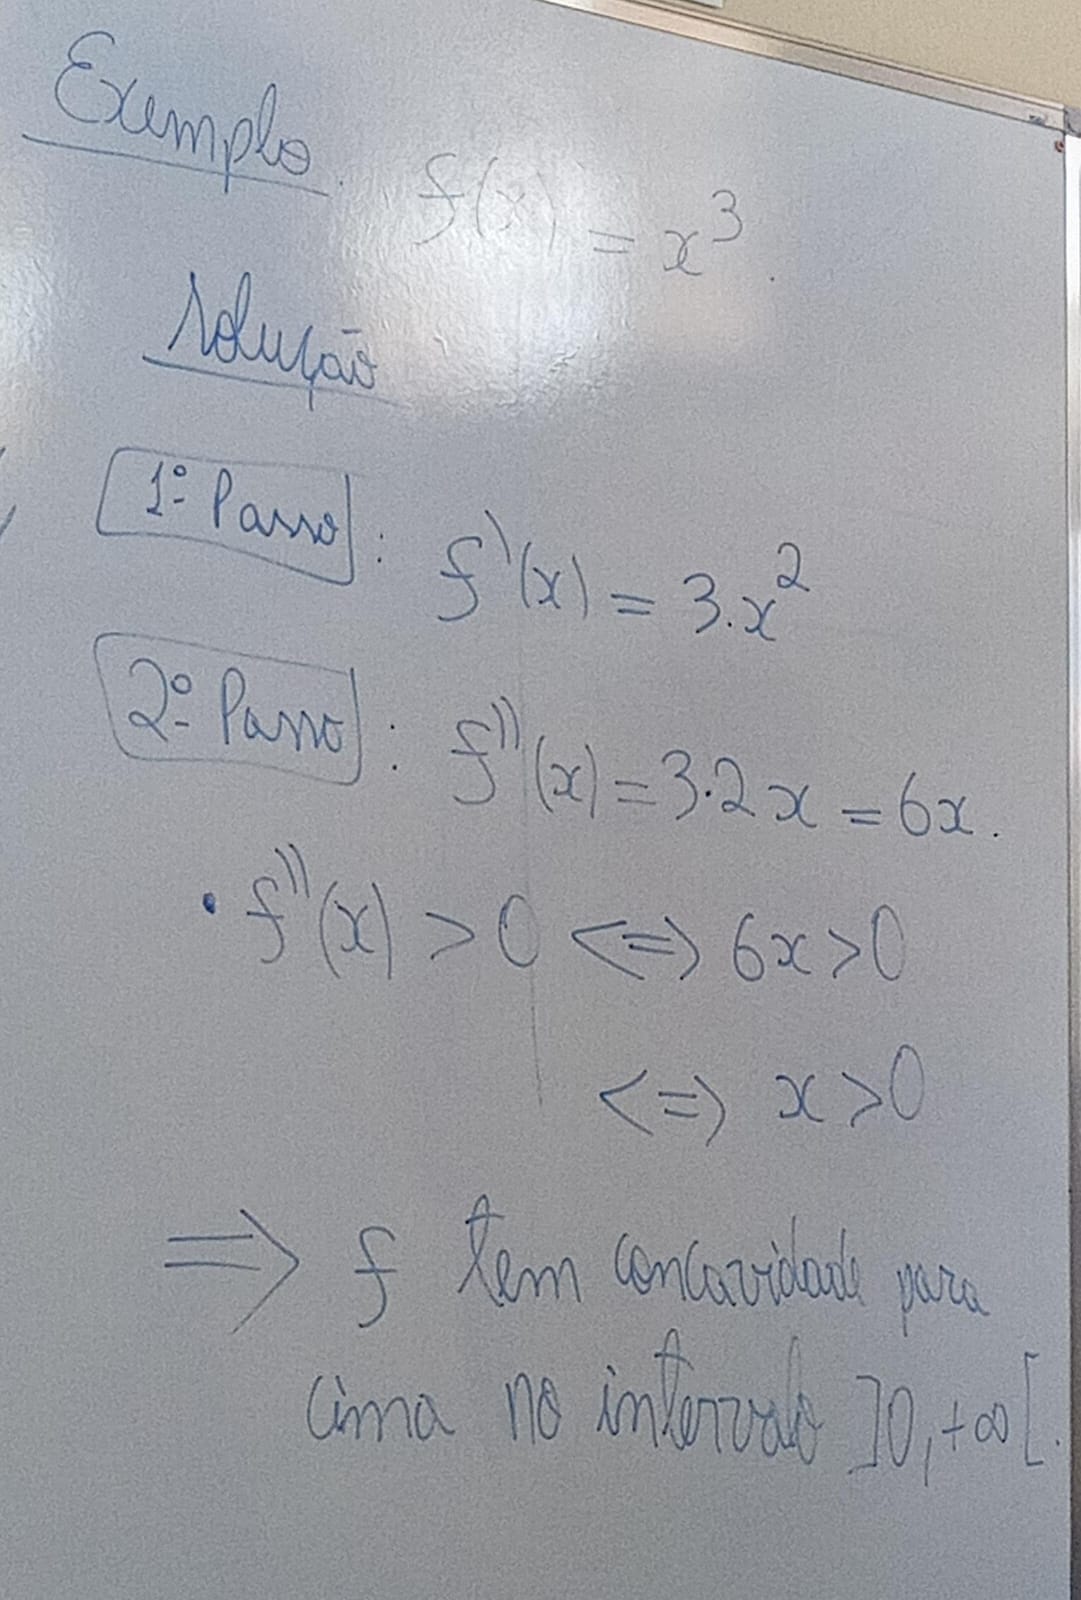 Exemplo. f(x) = x³.
Solução
1º Passo: f'(x) = 3.x²
2º Passo: f''(x) = 3.2x = 6x.
• f''(x) > 0 <=> 6x > 0
<=> x > 0
=> f tem concavidade para
cima no intervalo ]0,+∞[.